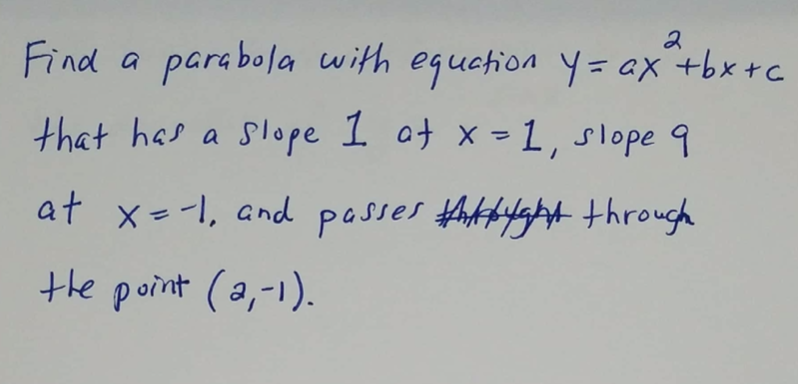 Find a parabola with equation y = ax²+bx+c
that has a slope 1 at x = 1, slope 9
at x = -1, and passes through
the point (2,-1).